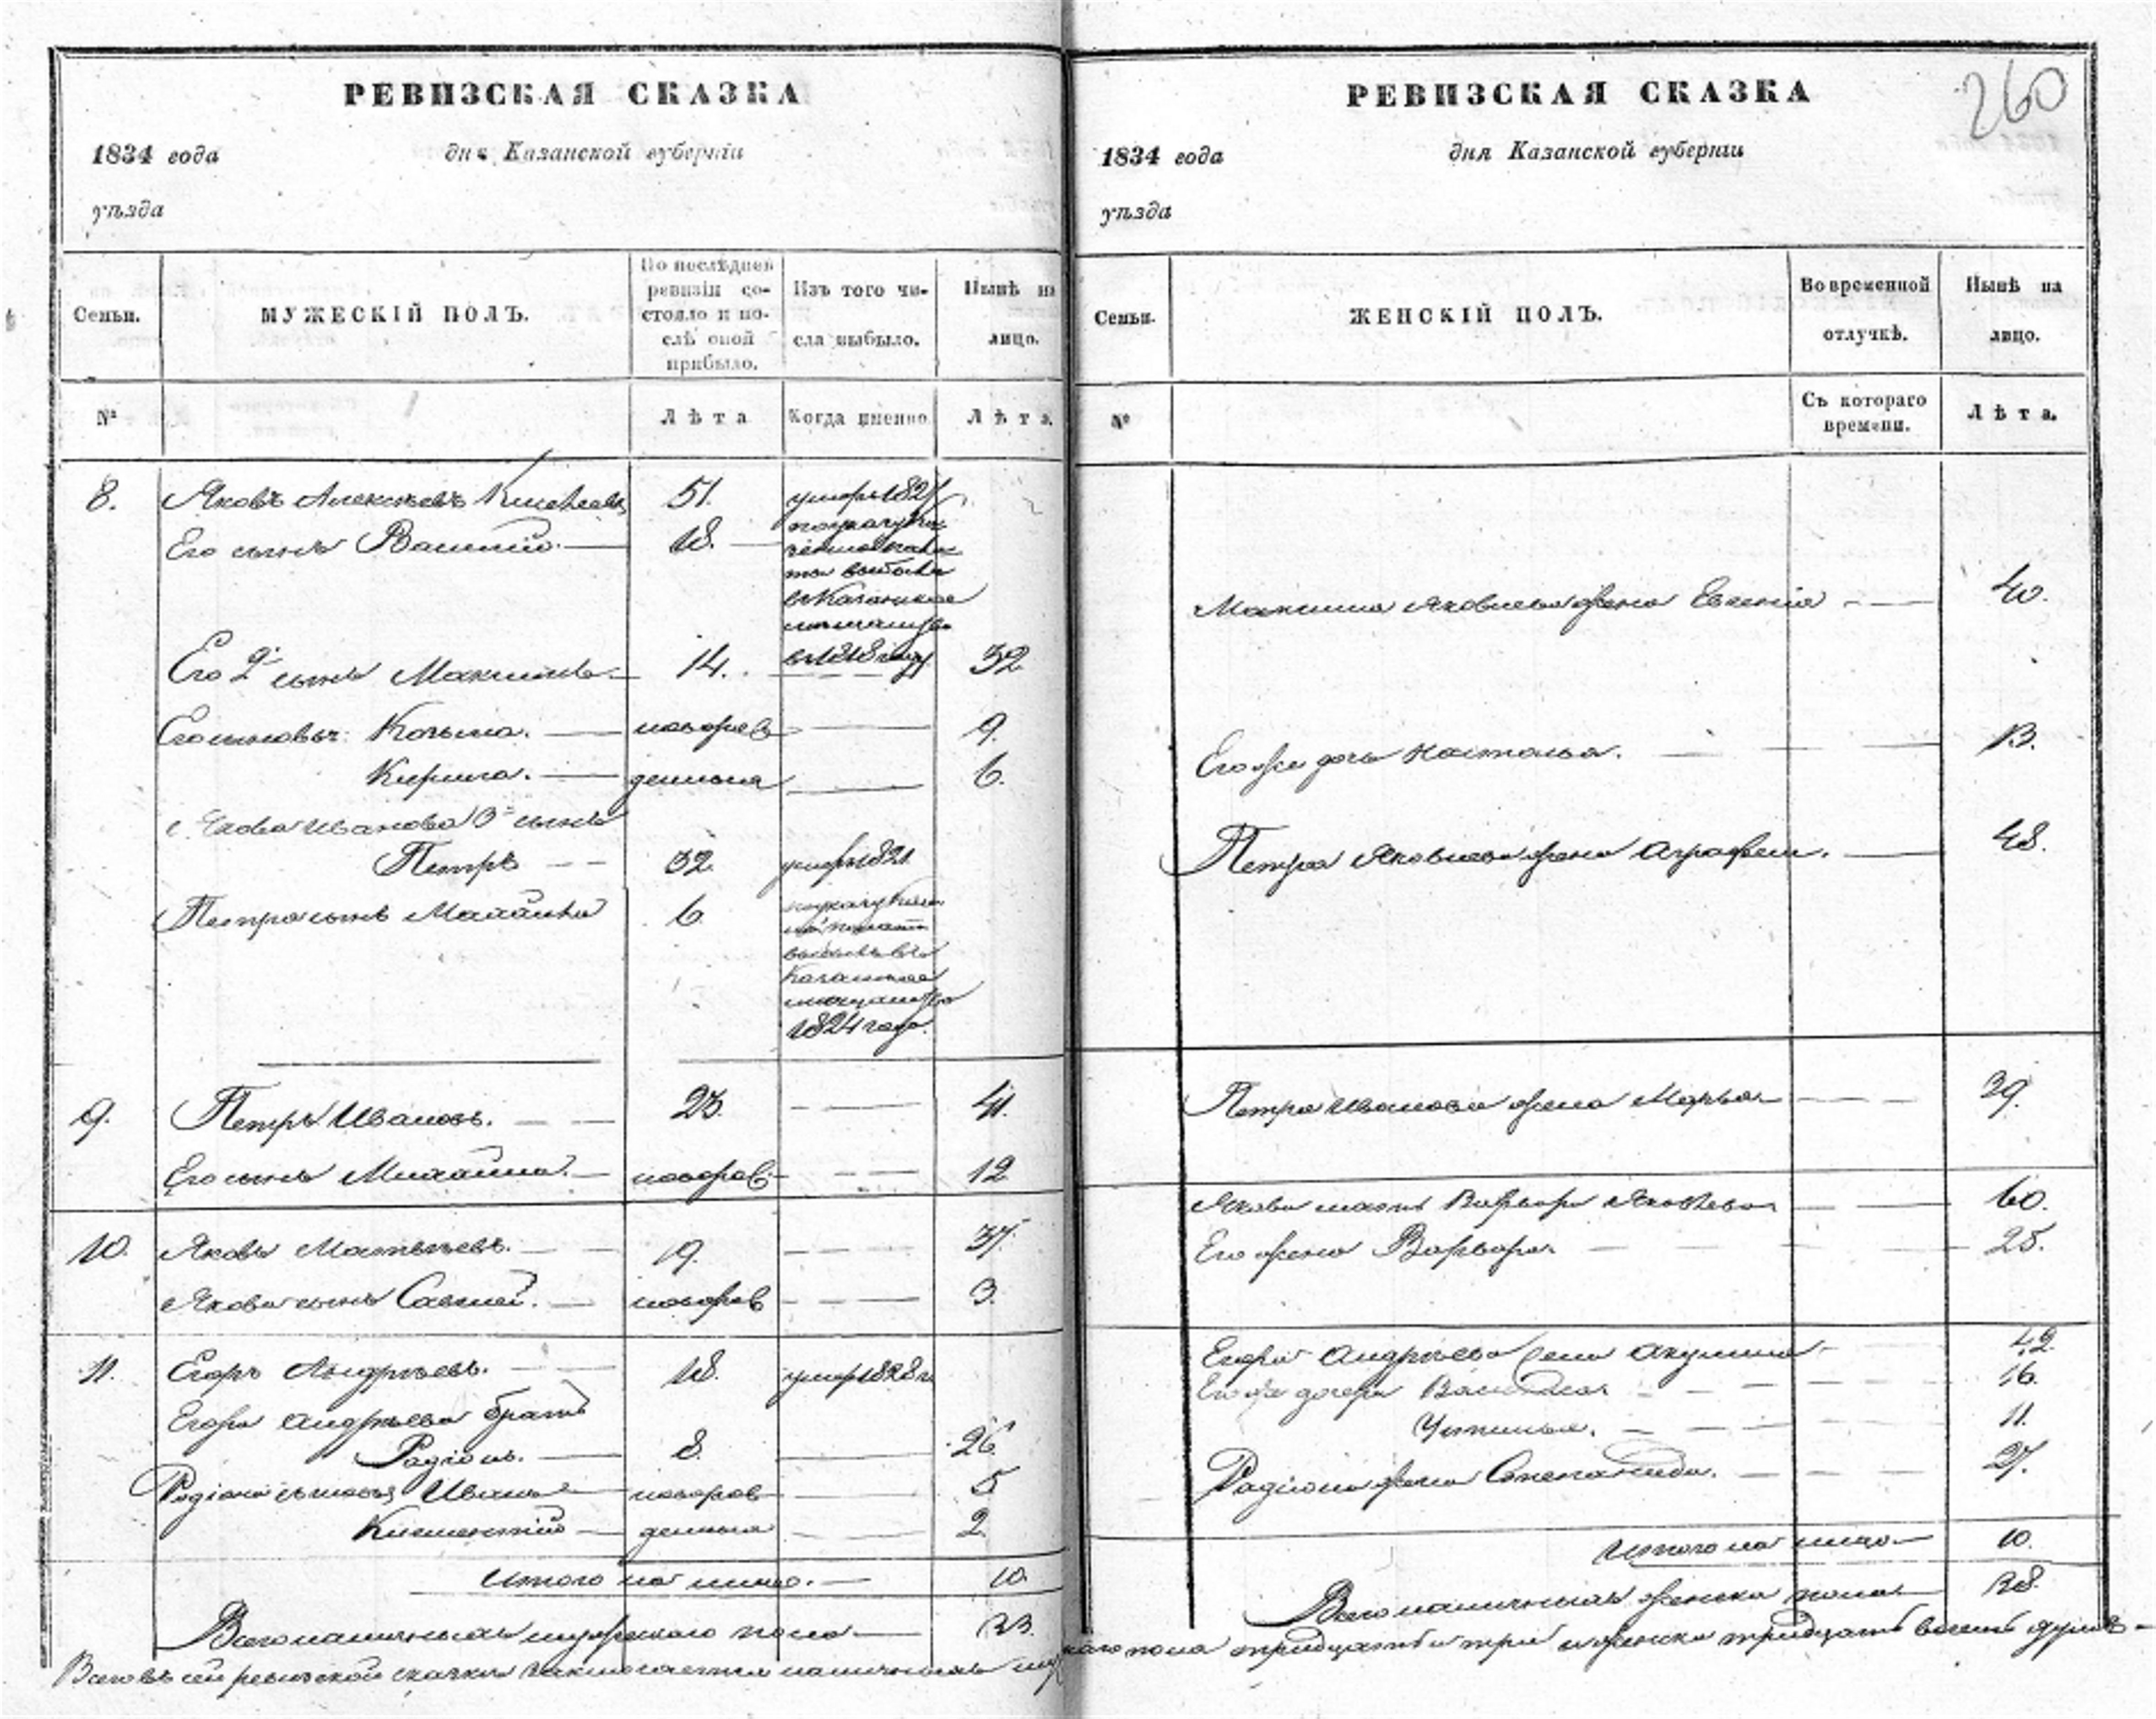 РЕВИЗСКАЯ СКАЗКА
1834 года дня Казанской губерніи
уѣзда
Семьи. МУЖЕСКІЙ ПОЛЪ. По послѣдней ревизіи состояло и послѣ оной прибыло. Изъ того числа выбыло. Нынѣ на лицо.
№ Лѣта Когда именно Лѣта.
8. Яковъ Алексѣевъ 51. умеръ 182
Его сынъ Василій. — 18. —
выбылъ
въ Казанское
мѣщанство
въ 1818 году
Его 2й сынъ Максимъ. — 14. 32
Его сыновья: Козьма. — новорож — 9.
Кирила. — денныя — 6.
Якова Иванова 3й сынъ
Петръ — — 32. умеръ 1821
Петра сынъ Михайла 6.
Казанское
мѣщанство
1824 года.
9. Петръ Ивановъ. — — 23. — — 41.
Его сынъ Михайла. — новорож — — 12
10. Яковъ Матвѣевъ. — — 19. — — — 37.
Якова сынъ Савелей. — новорож — — — 3.
11. Егоръ Андрѣевъ. — — 18. умеръ 1828 г
Егора Андрѣева братъ
Радіонъ. — 8. — 26.
Радіона сыновья Иванъ — новорож — 5
Климентій — денныя — 2
Итого на лицо. — 10.
Всего наличныхъ мужескаго пола — 33.
Всего въ сей ревизской сказке заключается наличныхъ муж
РЕВИЗСКАЯ СКАЗКА
260
1834 года дня Казанской губерніи
уѣзда
Семьи. ЖЕНСКІЙ ПОЛЪ. Во временной отлучкѣ. Нынѣ на лицо.
№ Съ котораго времени. Лѣта.
Максима Яковлева жена Евгенія — — 40.
Его же дочь Наталья. — — — 13.
Петра Яковлева жена Аграфена. — 48.
Петра Иванова жена Марья — — — 39.
Якова мать Варвара Яковлева — — 60.
Его жена Варвара. — — — 25.
Егора Андрѣева жена Акулина — 42.
Его же дочери — — — 16.
Устинья. — — — 11.
Радіона жена Степанида. — — — 27.
Итого на лицо — 10.
Всего наличныхъ женска пола — 38.
скаго пола тридцать и три и женска тридцать восемь душъ —